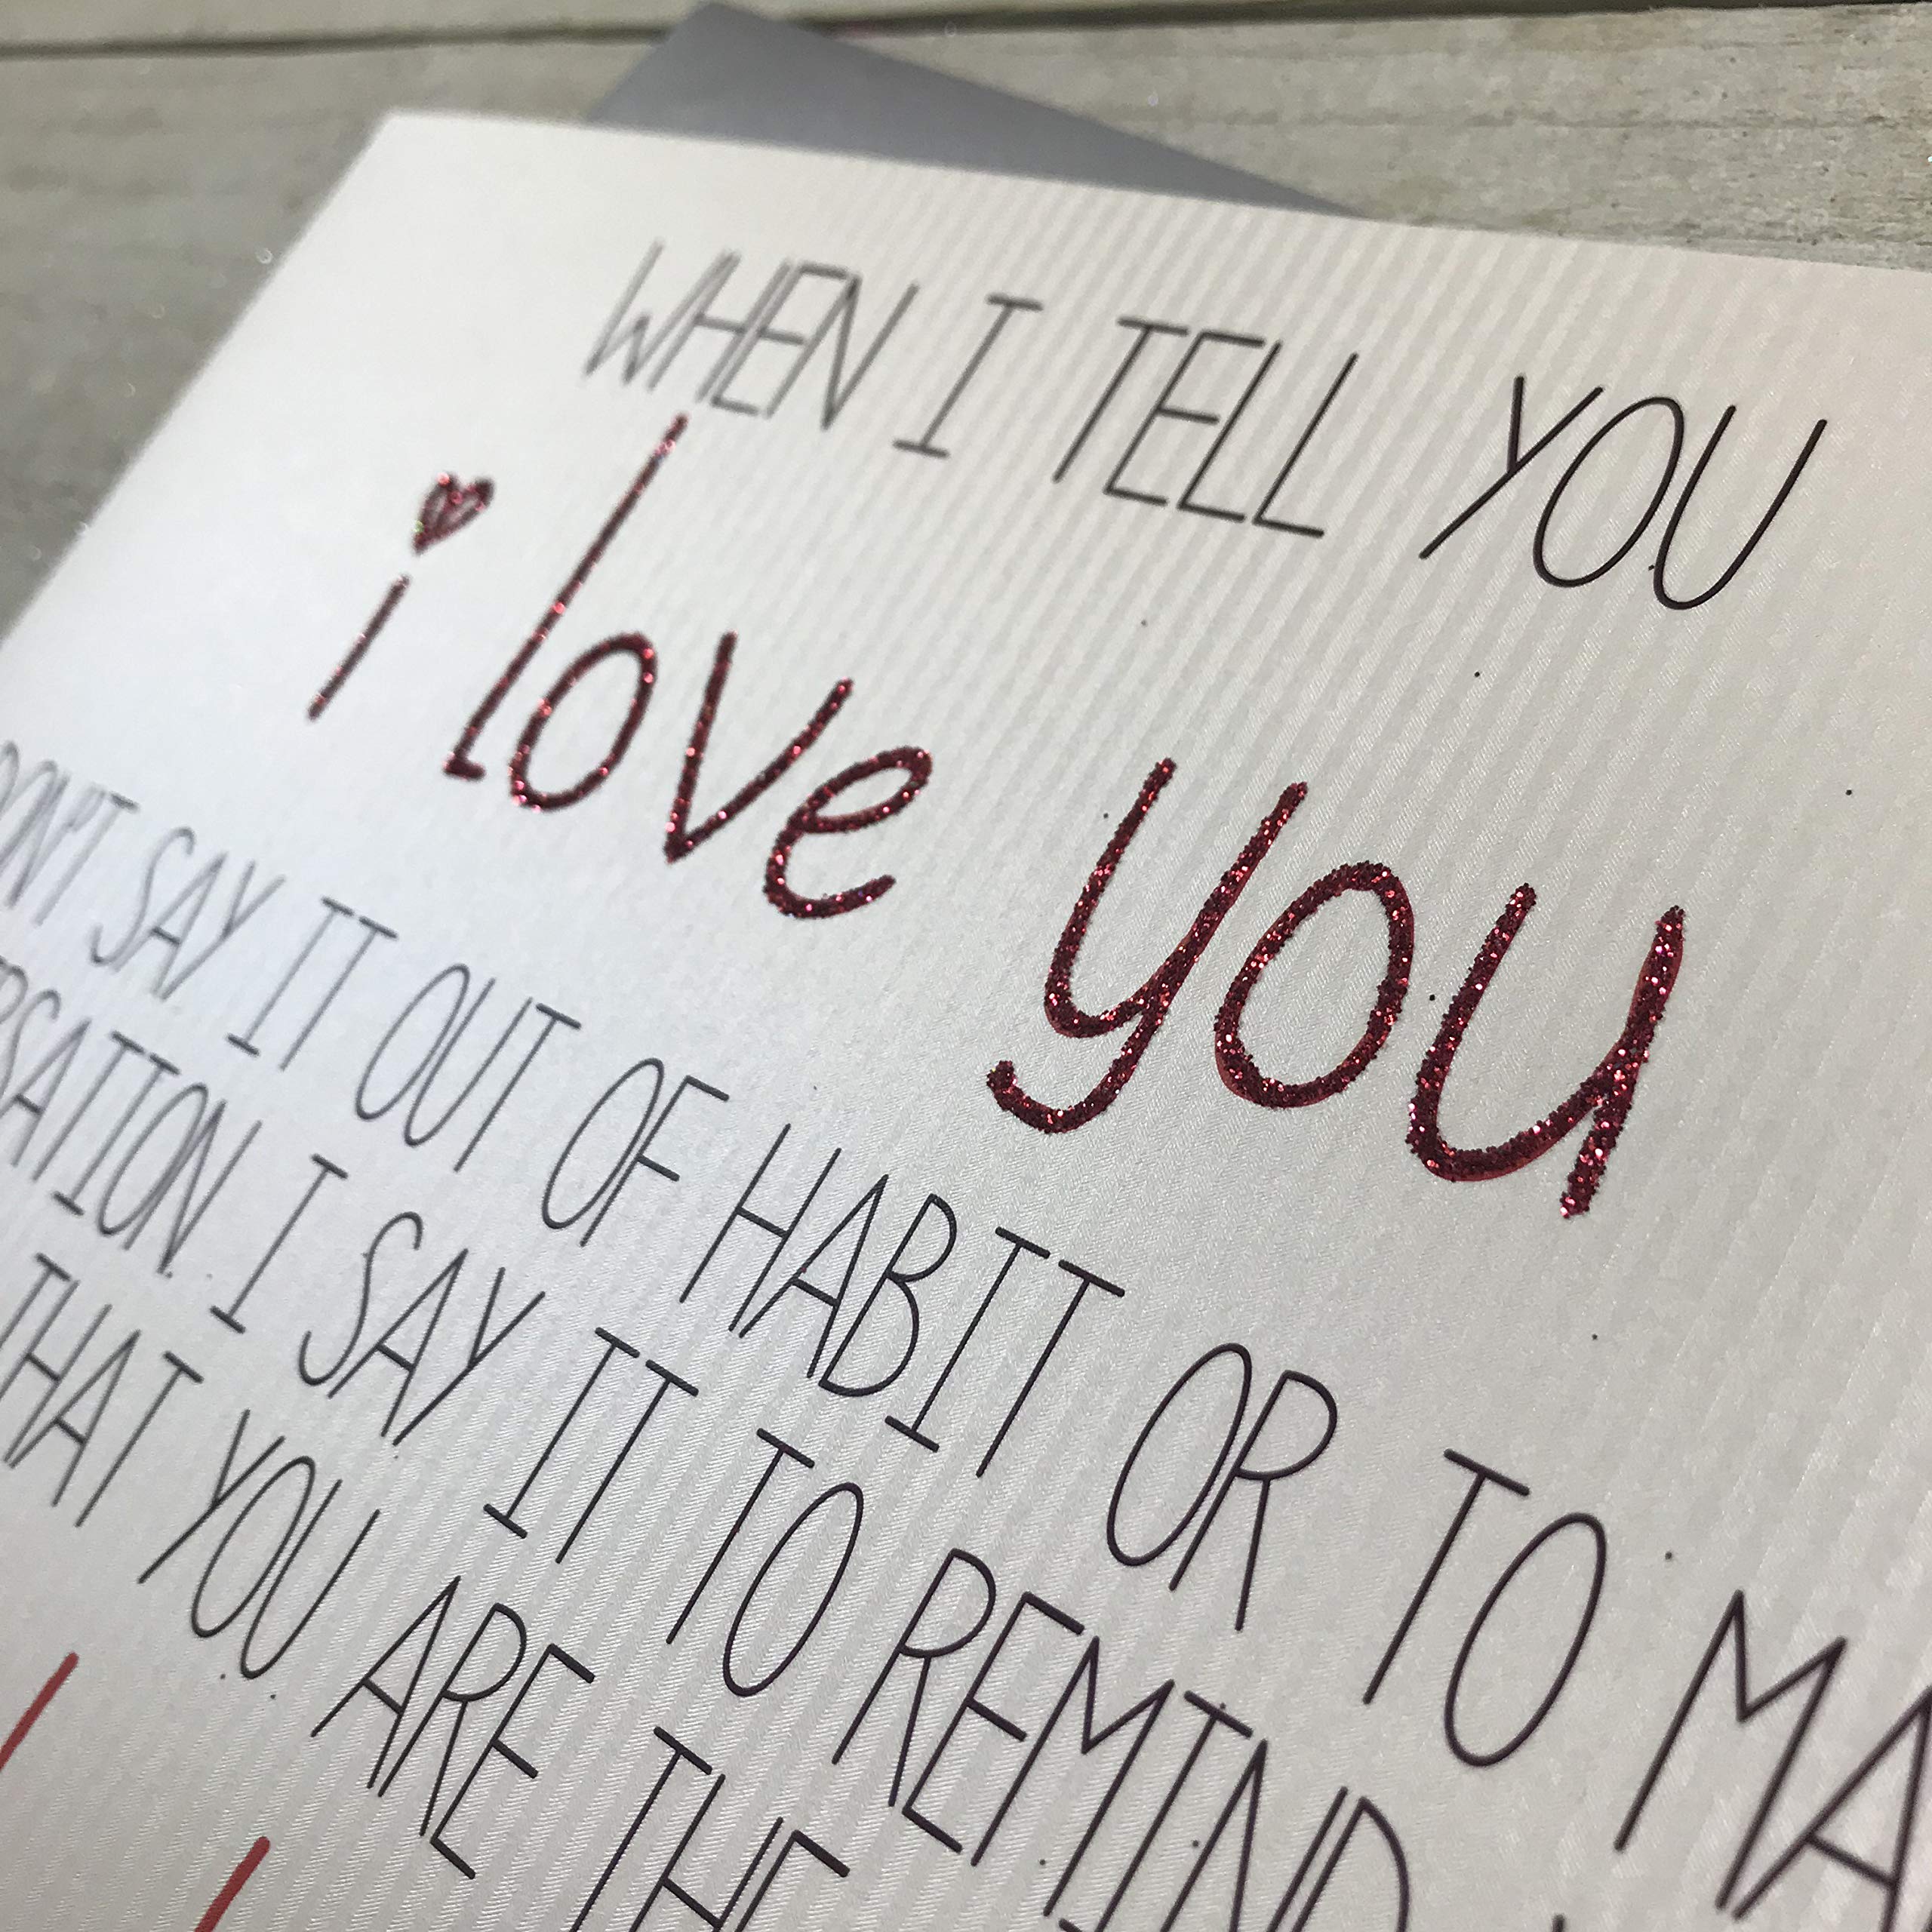 WHEN I TELL YOU
i love you
SAY IT OUT OF HABIT OR TO
I SAY IT TO REMIND
THAT YOU ARE THE